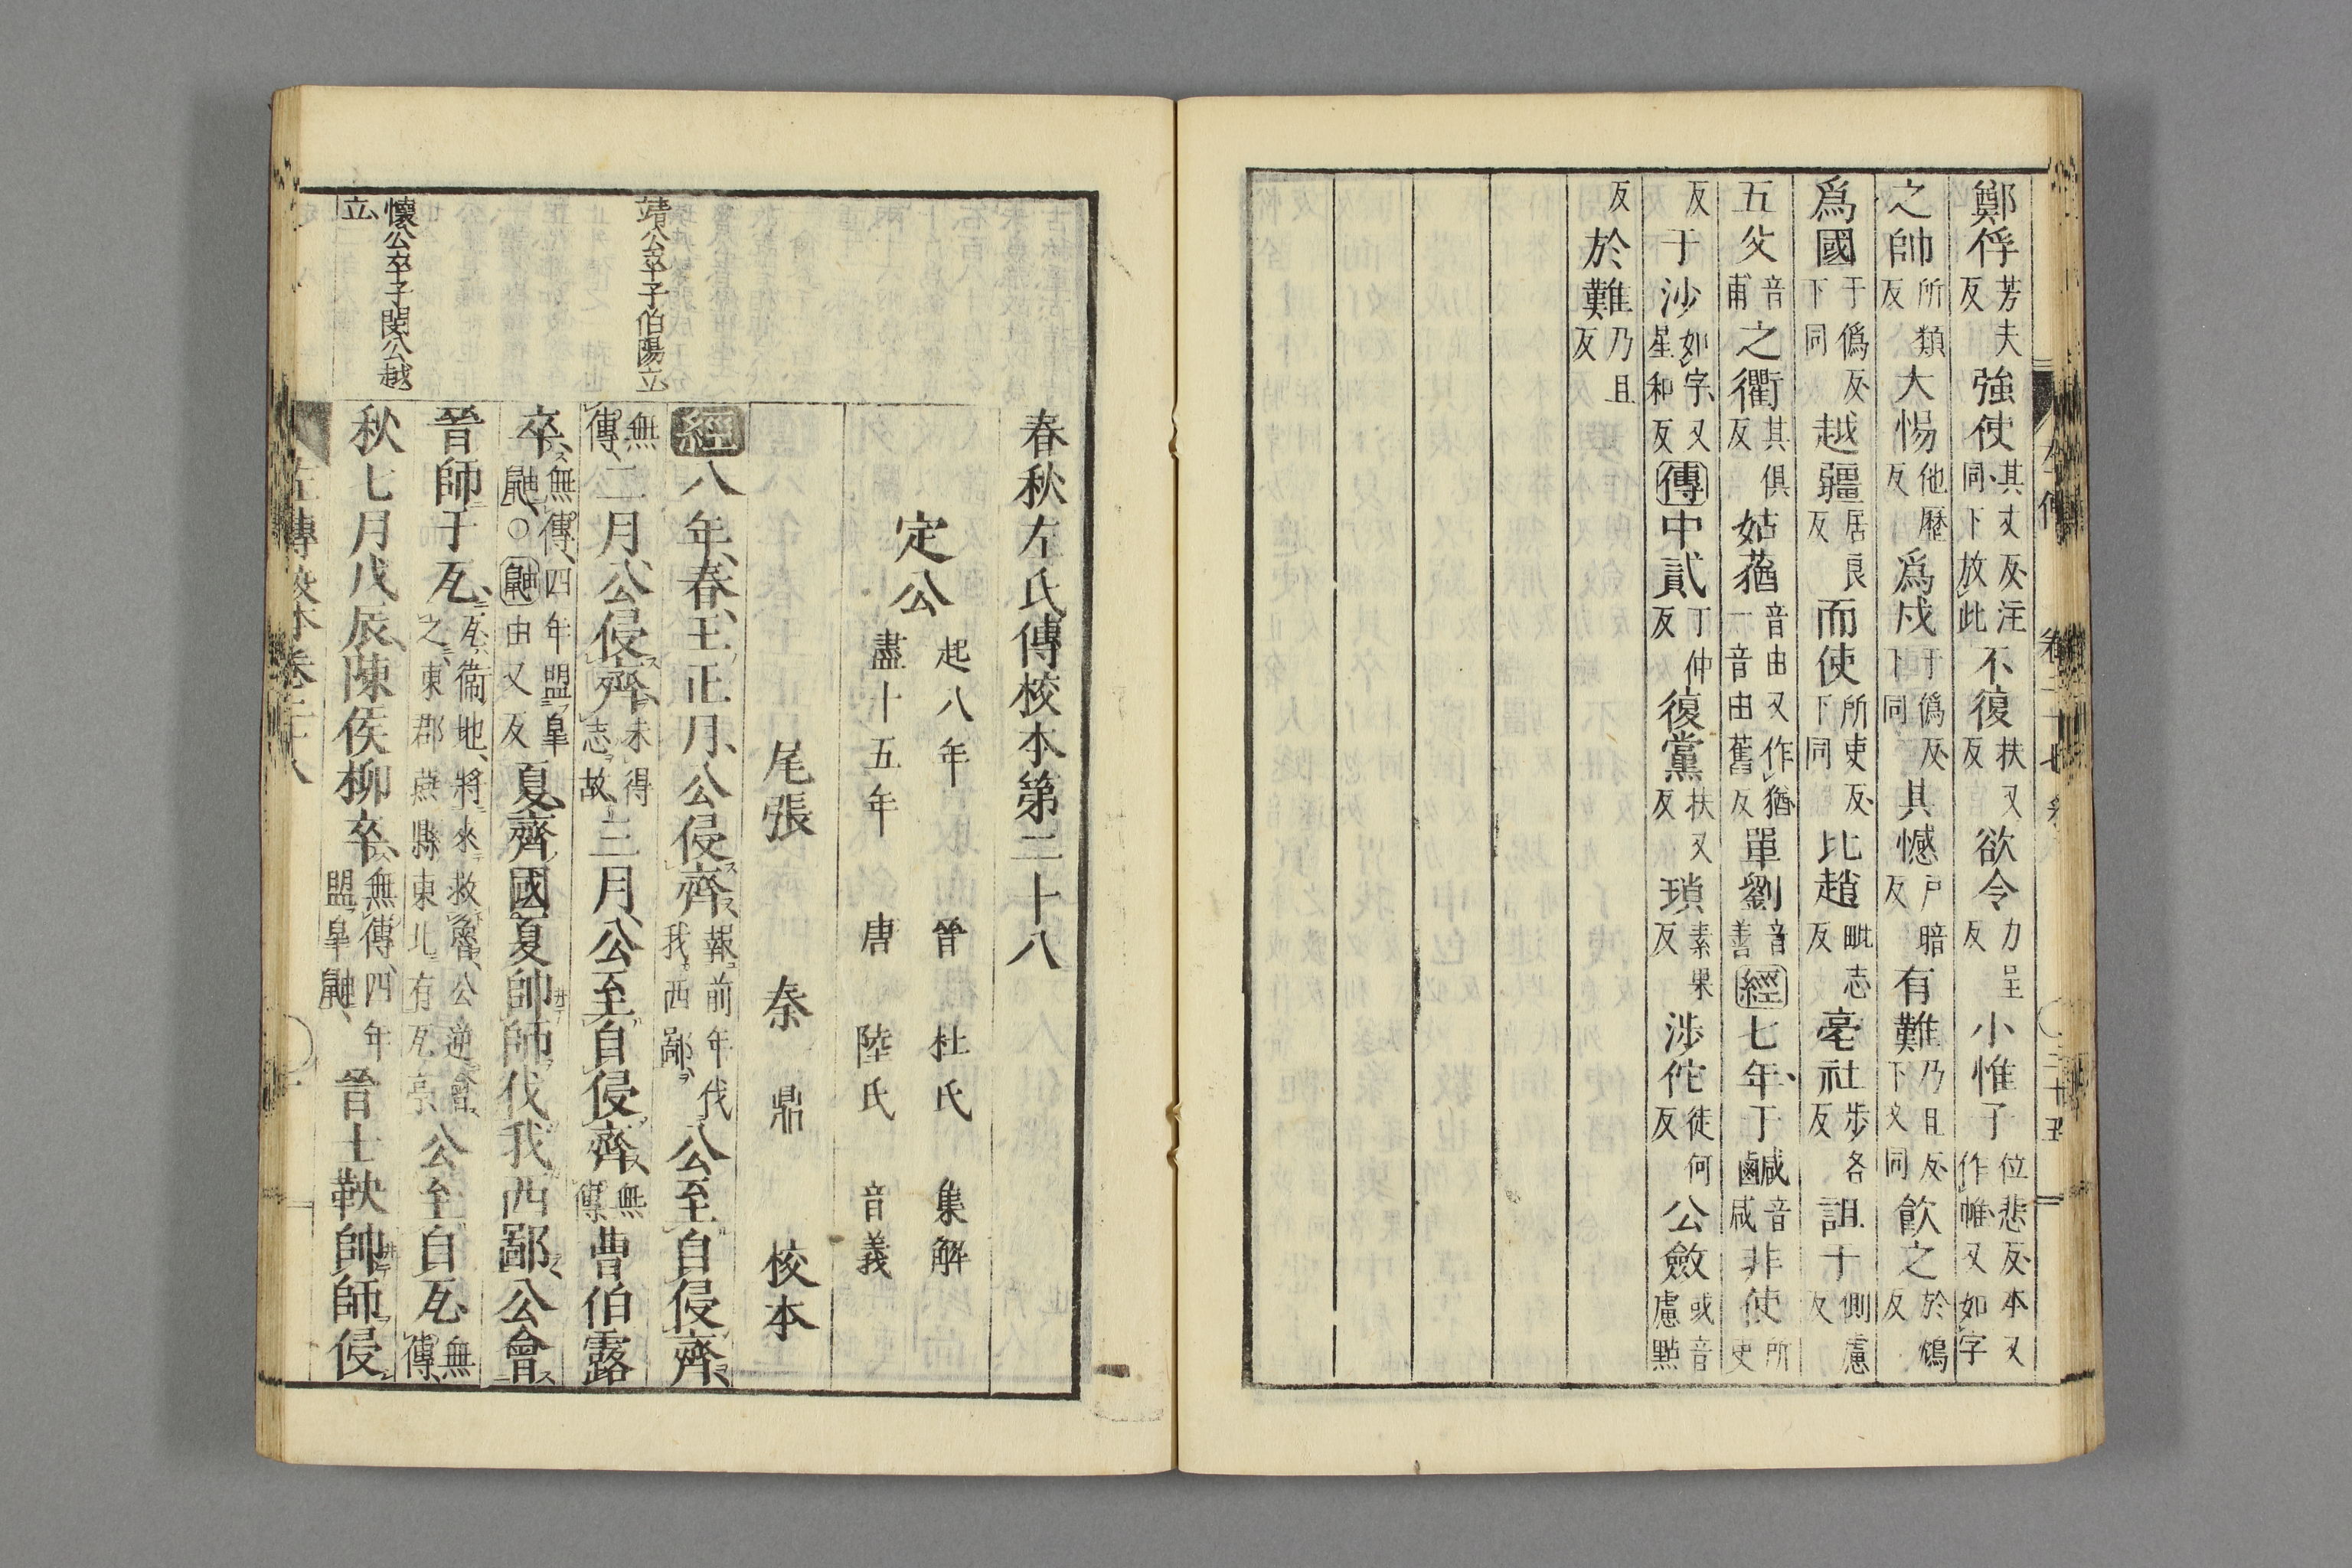 鄭俘芳夫反強使其丈反注同下放此不復扶又反欲令力呈反小惟子位悲反本又作帷又如字
之帥所類反大惕他歷反爲戍于僞反下同其憾戶暗反有難乃旦反下文同飮之於鴆反
爲國于僞反下同越疆居良反而使所吏反下同比趙毗志反亳社步各反詛于側慮反
五父音甫之衢其俱反姑蕕音由又作猶一音由舊反單劉音善經七年于鹹音咸非使所吏
反于沙如字又星和反傳中貳丁仲反復黨扶又反瑣素果反涉佗徒何反公斂或音慮點
反於難乃旦反
春秋左氏傳校本第二十八
定公起八年盡十五年
晉 杜氏 集解
唐 陸氏 音義
尾張 秦 鼎 校本
經八年春王正月公侵齊報前年伐我西鄙公至自侵齊
無傳二月公侵齊未得志故三月公至自侵齊無傳曹伯露
卒無傳四年盟皐鼬○鼬由又反夏齊國夏帥師伐我西鄙公會
晉師于瓦瓦衞地將來救魯公逆會之東郡燕縣東北有瓦亭公至自瓦無傳
秋七月戊辰陳侯柳卒無傳四年盟皐鼬晉士鞅帥師侵
靖公卒子伯陽立
懷公卒子閔公越立
左傳校本卷二十八